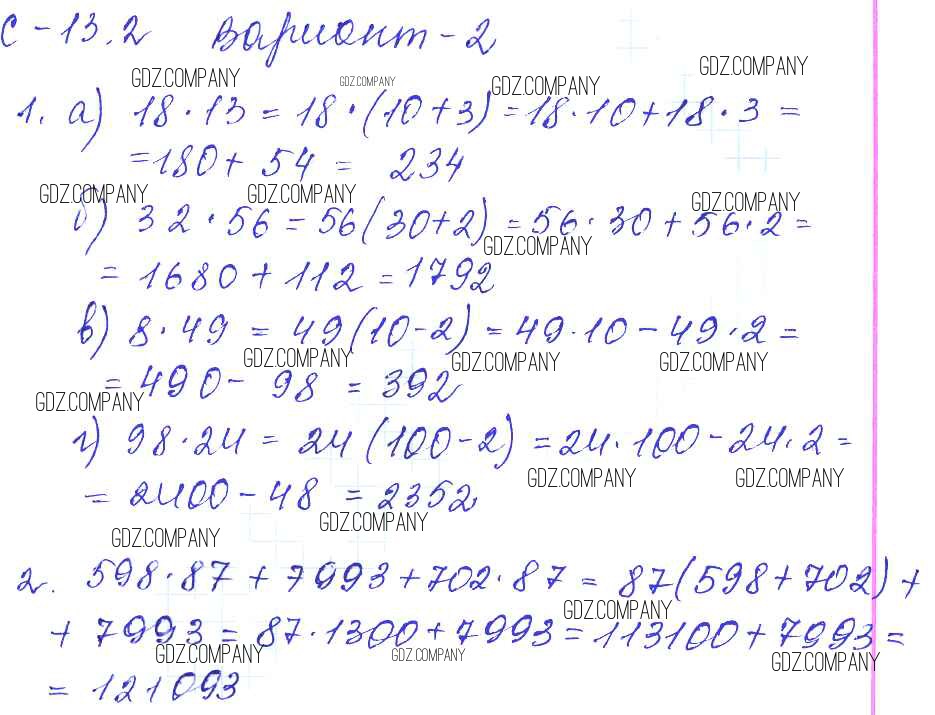 С-13.2 Вариант-2
GDZ.COMPANY GDZ.COMPANY GDZ.COMPANY GDZ.COMPANY
1. а) 18·13 = 18·(10+3) = 18·10+18·3 =
=180+ 54 = 234
GDZ.COMPANY GDZ.COMPANY GDZ.COMPANY
б) 32·56 = 56(30+2) = 56·30+56·2 =
GDZ.COMPANY
= 1680+112 = 1792
в) 8·49 = 49(10-2) = 49·10-49·2 =
GDZ.COMPANY GDZ.COMPANY GDZ.COMPANY
= 490- 98 = 392
GDZ.COMPANY
г) 98·24 = 24(100-2) = 24·100-24·2 =
GDZ.COMPANY GDZ.COMPANY
= 2400-48 = 2352
GDZ.COMPANY
GDZ.COMPANY
2. 598·87 + 7993+702·87 = 87(598+702)+
GDZ.COMPANY
+ 7993 = 87·1300+7993 = 113100+7993 =
GDZ.COMPANY GDZ.COMPANY GDZ.COMPANY
= 121093